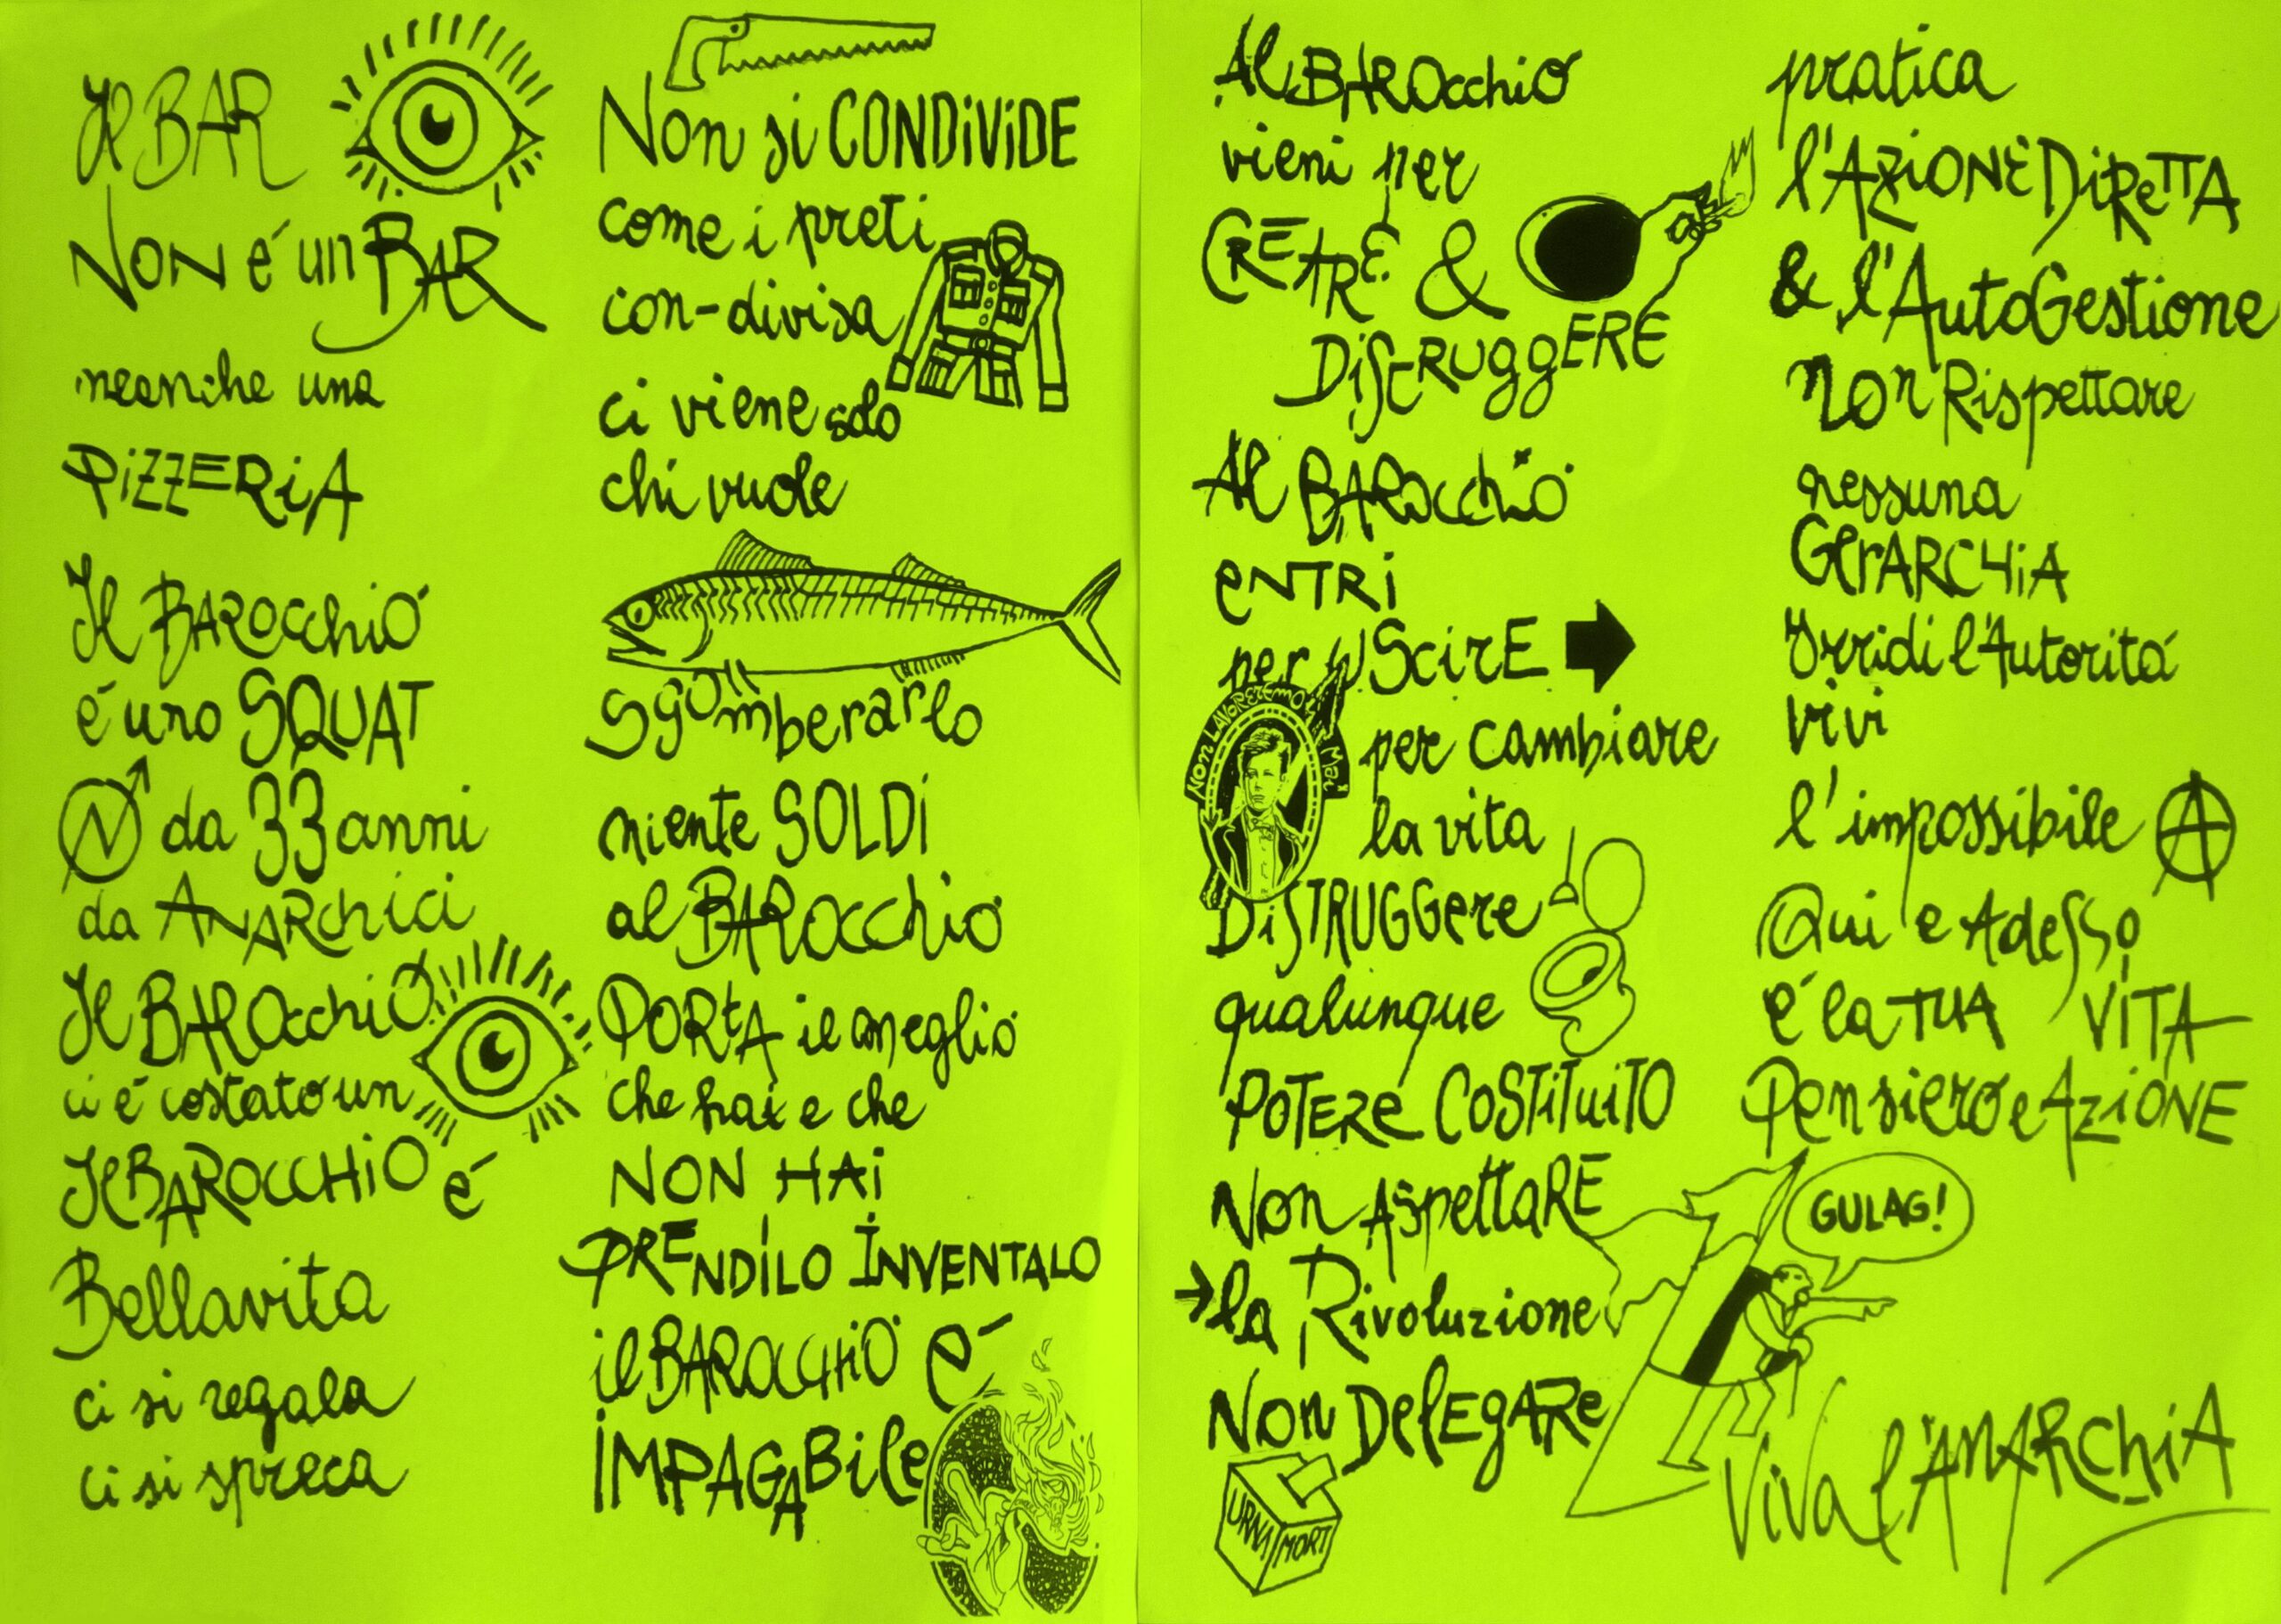 Il BAR
NON é un BAR
neanche una
PiZZERiA
Il BAROcchiO
é uno SQUAT
da 33 anni
da ANARchici
Il BAROcchiO
ci é costato un
Il BAROCCHiO é
Bellavita
ci si regala
ci si spreca
Non si CONDiViDE
come i preti
con-divisa
ci viene solo
chi vuole
Sgomberarlo
niente SOLDi
al BAROcchio
PORtA il meglio
che hai e che
NON HAi
PRENDiLO INVENTALO
il BAROCCHiO é
iMPAGABile
Al BAROcchiO
vieni per
CREARE &
DiSTRUggERE
Al BAROcchiO
eNTRi
per uScirE
NON LAVOREREMO MAI
per cambiare
la vita
DiSTRUGGere
qualunque
POTERe COSTiTUiTO
Non ASpettaRE
la Rivoluzione
Non DelEgARe
URNA MORT
pratica
l'AZiONE DiReTTA
& l'AutoGestione
non Rispettare
nessuna
GerARCHiA
Irridi l'Autoritá
vivi
l'impossibile A
Qui e Adesso
é la TUA VITA
Pensiero e AZiONE
GULAG!
ViVa l'ANARchiA